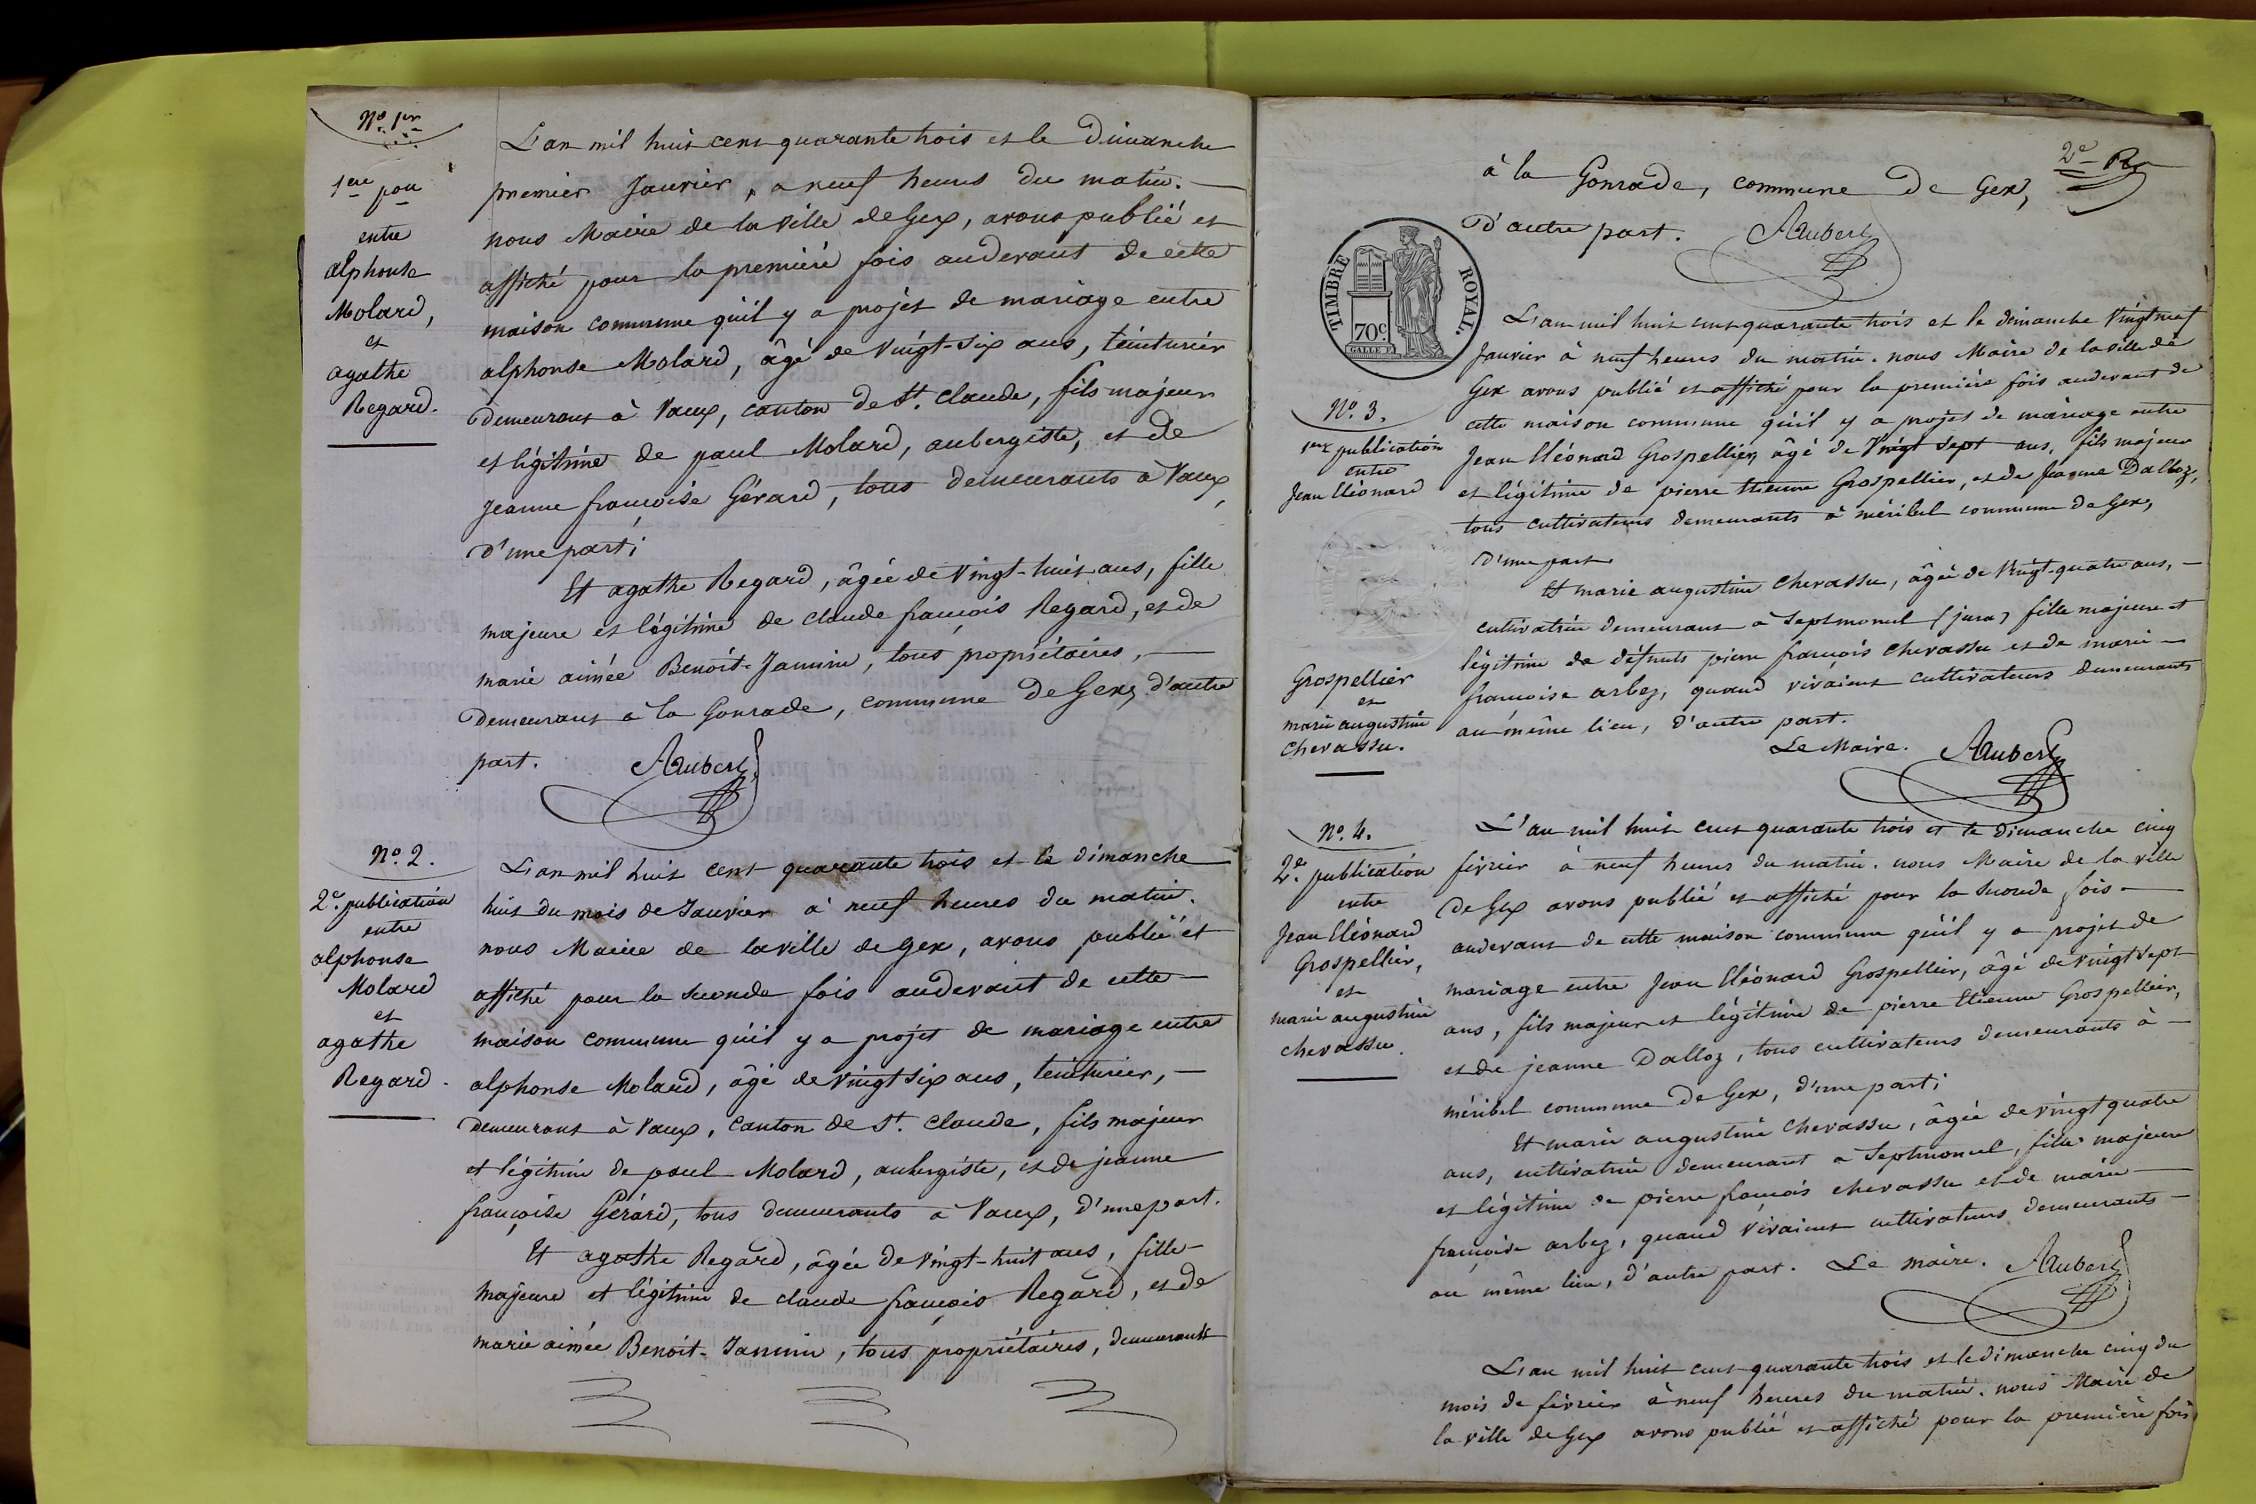 N.º 1er
1ere pon
entre
alphonse
Molard,
et
agathe
Regard.
L'an mil huit cent quarante trois et le Dimanche
premier Janvier, a neuf heures du matin.
nous Maire de la ville de Gex, avons publié et
affiché pour la premiere fois audevant de cette
maison commune qu'il y a projet de mariage entre
alphonse Molard, âgé de vingt-six ans, teinturier
demeurant à Vaux, canton de St. Claude, fils majeur
et légitime de paul Molard, aubergiste, et de
jeanne françoise Gérard, tous demeurants à Vaux,
d'une part;
Et agathe Regard, âgée de vingt-huit ans, fille
majeure et légitime de claude françois Regard, et de
marie aimée Benoit-Jannin, tous propriétaires,
demeurant à la Gonrade, commune de Gex, d'autre
part. Aubert
N.º 2.
2e. publication
entre
alphonse
Molard
et
agathe
Regard.
L'an mil huit cent quarante trois et le dimanche
huit du mois de Janvier à neuf heures du matin.
nous Maire de la ville de Gex, avons publié et
affiché pour la seconde fois audevant de cette
maison commune qu'il y a projet de mariage entre
alphonse Molard, âgé de vingt six ans, teinturier,
demeurant à Vaux, canton de St. Claude, fils majeur
et légitime de paul Molard, aubergiste, et de jeanne
françoise Gérard, tous demeurants a Vaux, d'une part.
Et agathe Regard, âgée de vingt-huit ans, fille
majeure et légitime de claude françois Regard, et de
marie aimée Benoit-Jannin, tous propriétaires, demeurants
2e
à la Gonrade, commune de Gex,
d'autre part. Aubert
TIMBRE ROYAL.
70 c.
N.º 3.
1ere publication
entre
Jean Cléonard
Grospellier
et
marie augustine
chevassu.
L'an mil huit cent quarante trois et le dimanche vingt neuf
Janvier à neuf heures du matin. nous Maire de la ville de
Gex avons publié et affiché pour la première fois audevant de
cette maison commune qu'il y a projet de mariage entre
Jean Cléonard Grospellier, âgé de vingt sept ans, fils majeur
et légitime de pierre Etienne Grospellier, et de jeanne Dalloz,
tous cultivateurs demeurants à méribel commune de Gex,
d'une part
Et marie augustine chevassu, âgée de vingt-quatre ans,
cultivatrice demeurant à Septmoncel (jura) fille majeure et
légitime de défunts pierre françois chevassu et de marie
françoise arbez, quand vivaient cultivateurs demeurants
au même lieu, d'autre part.
Le Maire. Aubert
N.º 4.
2e. publication
entre
Jean Cléonard
Grospellier,
et
marie augustine
chevassu.
L'an mil huit cent quarante trois et le dimanche cinq
février à neuf heures du matin. nous Maire de la ville
de Gex avons publié et affiché pour la seconde fois
audevant de cette maison commune qu'il y a projet de
mariage entre Jean Cléonard Grospellier, âgé de vingt sept
ans, fils majeur et légitime de pierre Etienne Grospellier,
et de jeanne Dalloz, tous cultivateurs demeurants à
méribel commune de Gex, d'une part;
Et marie augustine chevassu, âgée de vingt quatre
ans, cultivatrice demeurant à Septmoncel, fille majeure
et légitime de pierre françois chevassu et de marie
françoise arbez, quand vivaient cultivateurs demeurants
au même lieu, d'autre part. Le maire. Aubert
L'an mil huit cent quarante trois et le dimanche cinq du
mois de février à neuf heures du matin. nous Maire de
la ville de Gex avons publié et affiché pour la première fois